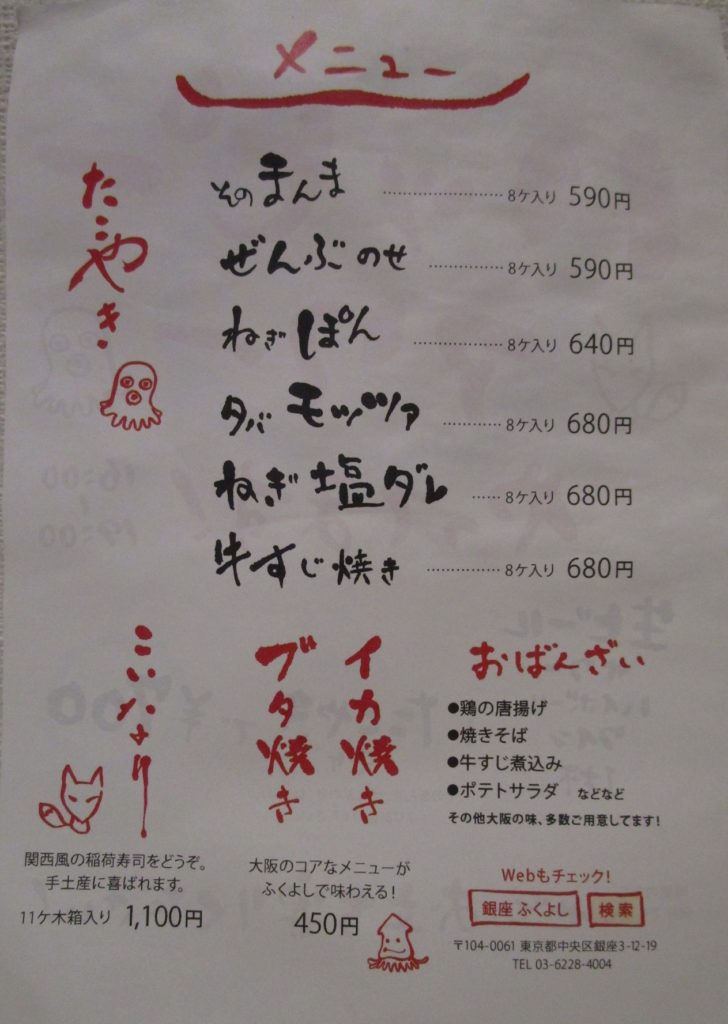 メニュー
たこやき
そのまんま 8ケ入り 590円
ぜんぶのせ 8ケ入り 590円
ねぎぽん 8ケ入り 640円
タバモッツァ 8ケ入り 680円
ねぎ塩ダレ 8ケ入り 680円
牛すじ焼き 8ケ入り 680円
こいなり
関西風の稲荷寿司をどうぞ。
手土産に喜ばれます。
11ケ木箱入り 1,100円
イカ焼き
ブタ焼き
大阪のコアなメニューが
ふくよしで味わえる!
450円
おばんざい
●鶏の唐揚げ
●焼きそば
●牛すじ煮込み
●ポテトサラダ などなど
その他大阪の味、多数ご用意してます!
Webもチェック!
銀座 ふくよし 検索
〒104-0061 東京都中央区銀座3-12-19
TEL 03-6228-4004